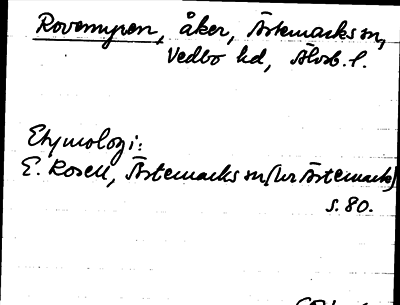 Rovemyren, åker, Ärtemarks sn,
Vedbo hd, Älvsb. l.
Etymologi:
E. Rosell, Ärtemarks sn (ur Ärtemark)
s. 80.